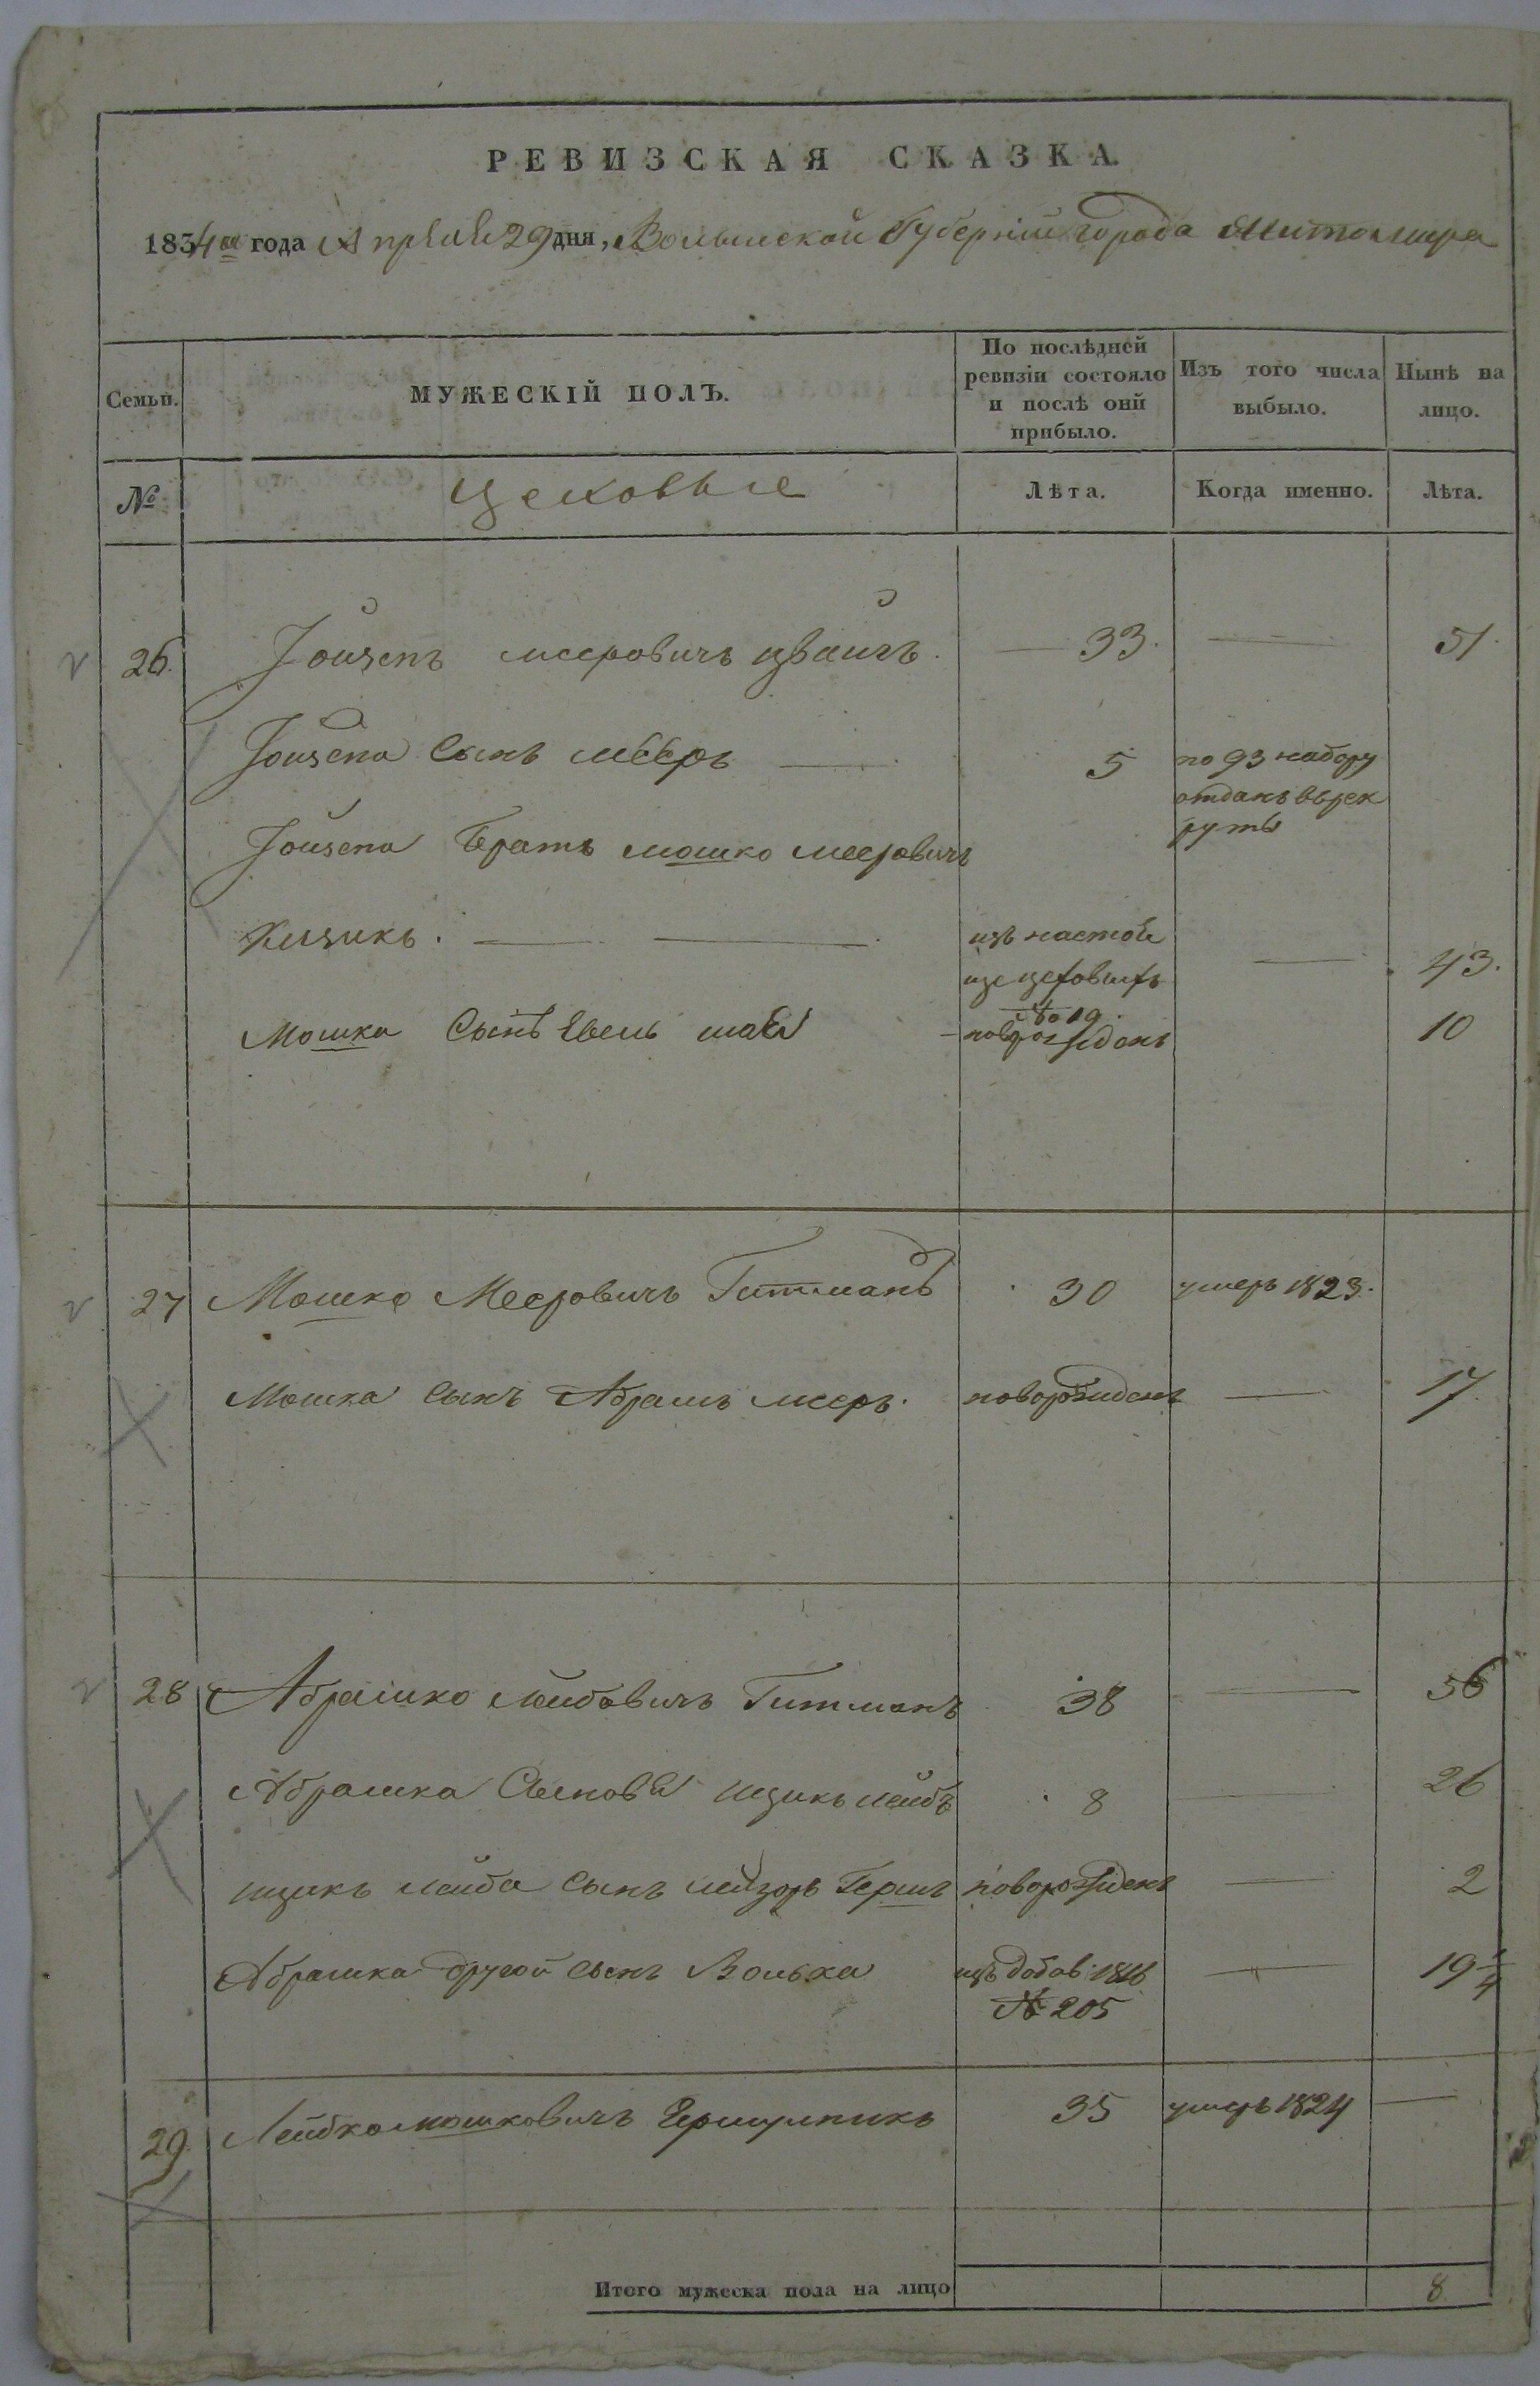 РЕВИЗСКАЯ СКАЗКА.
1834го года Апреля 29 дня, Волынской Губернии города Житомира
Семьи.
МУЖЕСКІЙ ПОЛЪ.
По послѣдней
ревизіи состояло
и послѣ оній
прибыло.
Изъ того числа
выбыло.
Нынѣ на
лицо.
№
Цеховые
Лѣта.
Когда именно.
Лѣта.
26. Іойзепъ мееровичъ цвайгъ. 33. 51.
Іойзепа Сынъ мееръ 5 по 93 набору
отданъ врек
руты
Іойзепа Братъ мошко мееровичъ
изъ настоя
43.
ще цеховыхъ
№ 19.
Мошка Сынъ шая новорожденъ 10
27 Мошко Мееровичъ Гитманъ 30 умеръ 1823.
Мошка Сынъ Абрамъ мееръ. новорожденъ 17
28 Абрамко Лейбовичъ Гитманъ 38 56
Абрамка Сыновья ицикъ лейбъ 8 26
ицикъ лейба Сынъ лейзоръ Гершъ новорожденъ 2
Абрамка другой Сынъ Волька изъ добав: 1816 19 1/4
№ 205
29. Лейбко мошковичъ 35 умеръ 1824
Итого мужеска пола на лицо 8